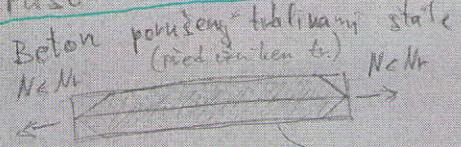 Beton porušený trhlinami stále
(před vznikem tr.)
N<Nr
N<Nr